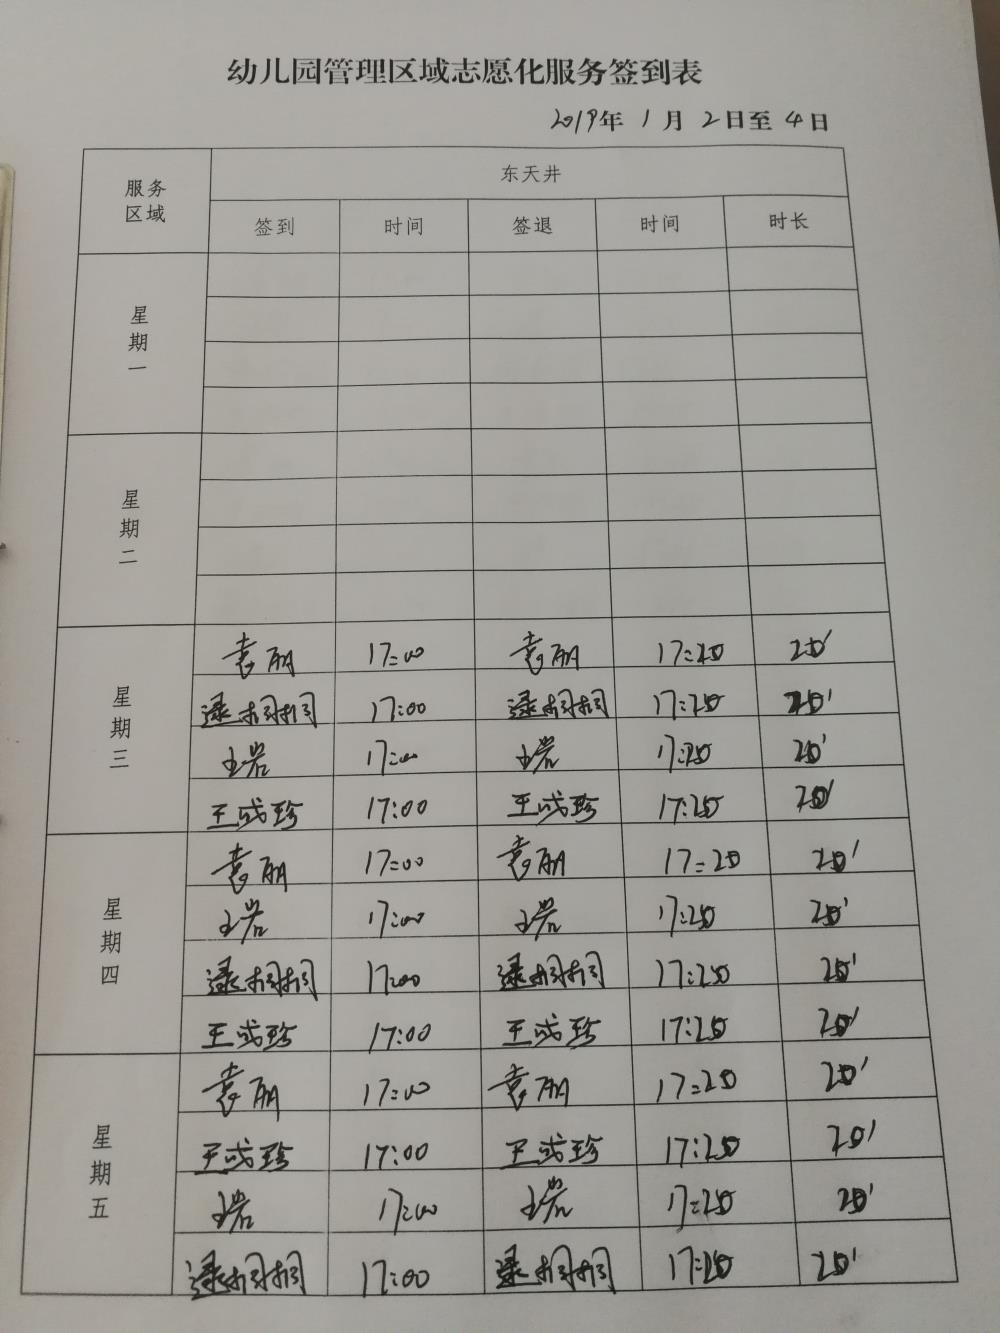 幼儿园管理区域志愿化服务签到表
2019年 1月 2日至 4日
服务区域 东天井
签到 时间 签退 时间 时长
星期一
星期二
星期三
袁丽 17:00 袁丽 17:20 20'
逯栩栩 17:00 逯栩栩 17:20 20'
王岩 17:00 王岩 17:20 20'
王成珍 17:00 王成珍 17:20 20'
星期四
袁丽 17:00 袁丽 17:20 20'
王岩 17:00 王岩 17:20 20'
逯栩栩 17:00 逯栩栩 17:20 20'
王成珍 17:00 王成珍 17:20 20'
星期五
袁丽 17:00 袁丽 17:20 20'
王成珍 17:00 王成珍 17:20 20'
王岩 17:00 王岩 17:20 20'
逯栩栩 17:00 逯栩栩 17:20 20'